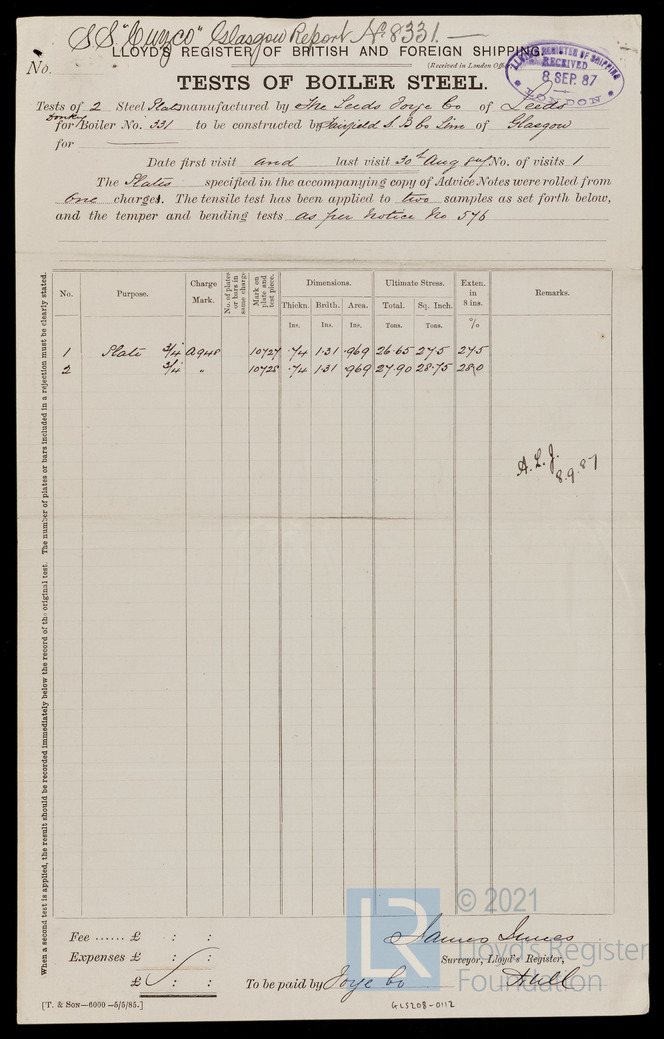 S.S. "Cuzco" Glasgow Report No 8331.—
LLOYD'S REGISTER OF BRITISH AND FOREIGN SHIPPING.
No.
(Received in London Office
LLOYD'S REGISTER OF SHIPPING
RECEIVED
8 SEP. 87
LONDON
TESTS OF BOILER STEEL.
Tests of 2 Steel Plates manufactured by The Leeds Forge Co of Leeds
for Donkey Boiler No. 331 to be constructed by Fairfield S. B Co Lim of Glasgow
for
Date first visit and last visit 30th Aug 87 No. of visits 1
The Plates specified in the accompanying copy of Advice Notes were rolled from
One charges. The tensile test has been applied to two samples as set forth below,
and the temper and bending tests as per Notice No 576
No. Purpose. Charge Mark. No. of plates or bars in same charge Mark on plate and test piece. Dimensions. Ultimate Stress. Exten. in 8 ins. Remarks.
Thickn. Brdth. Area. Total. Sq. Inch.
Ins. Ins. Ins. Tons. Tons. %
1 Plate 3/4 A948 10727 .74 1.31 .969 26.65 27.5 27.5
2 3/4 " 10728 .74 1.31 .969 27.90 28.75 28.0
A.L.J.
8.9.87
When a second test is applied, the result should be recorded immediately below the record of the original test. The number of plates or bars included in a rejection must be clearly stated.
Fee ...... £ : :
Expenses £ : :
£ : :
James Innes
Surveyor, Lloyd's Register,
To be paid by Forge Co
Hull
[T. & SON—6000—5/5/85.]
GLS208-0112
LR
© 2021
Lloyd's Register
Foundation